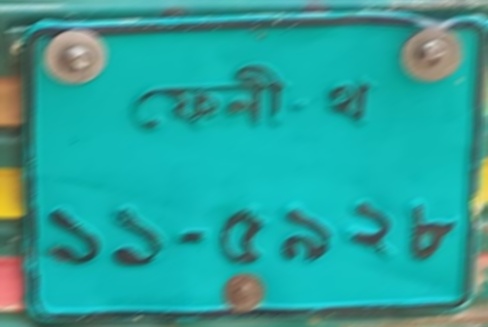 ফেনী-থ
১১-৫৯২৮